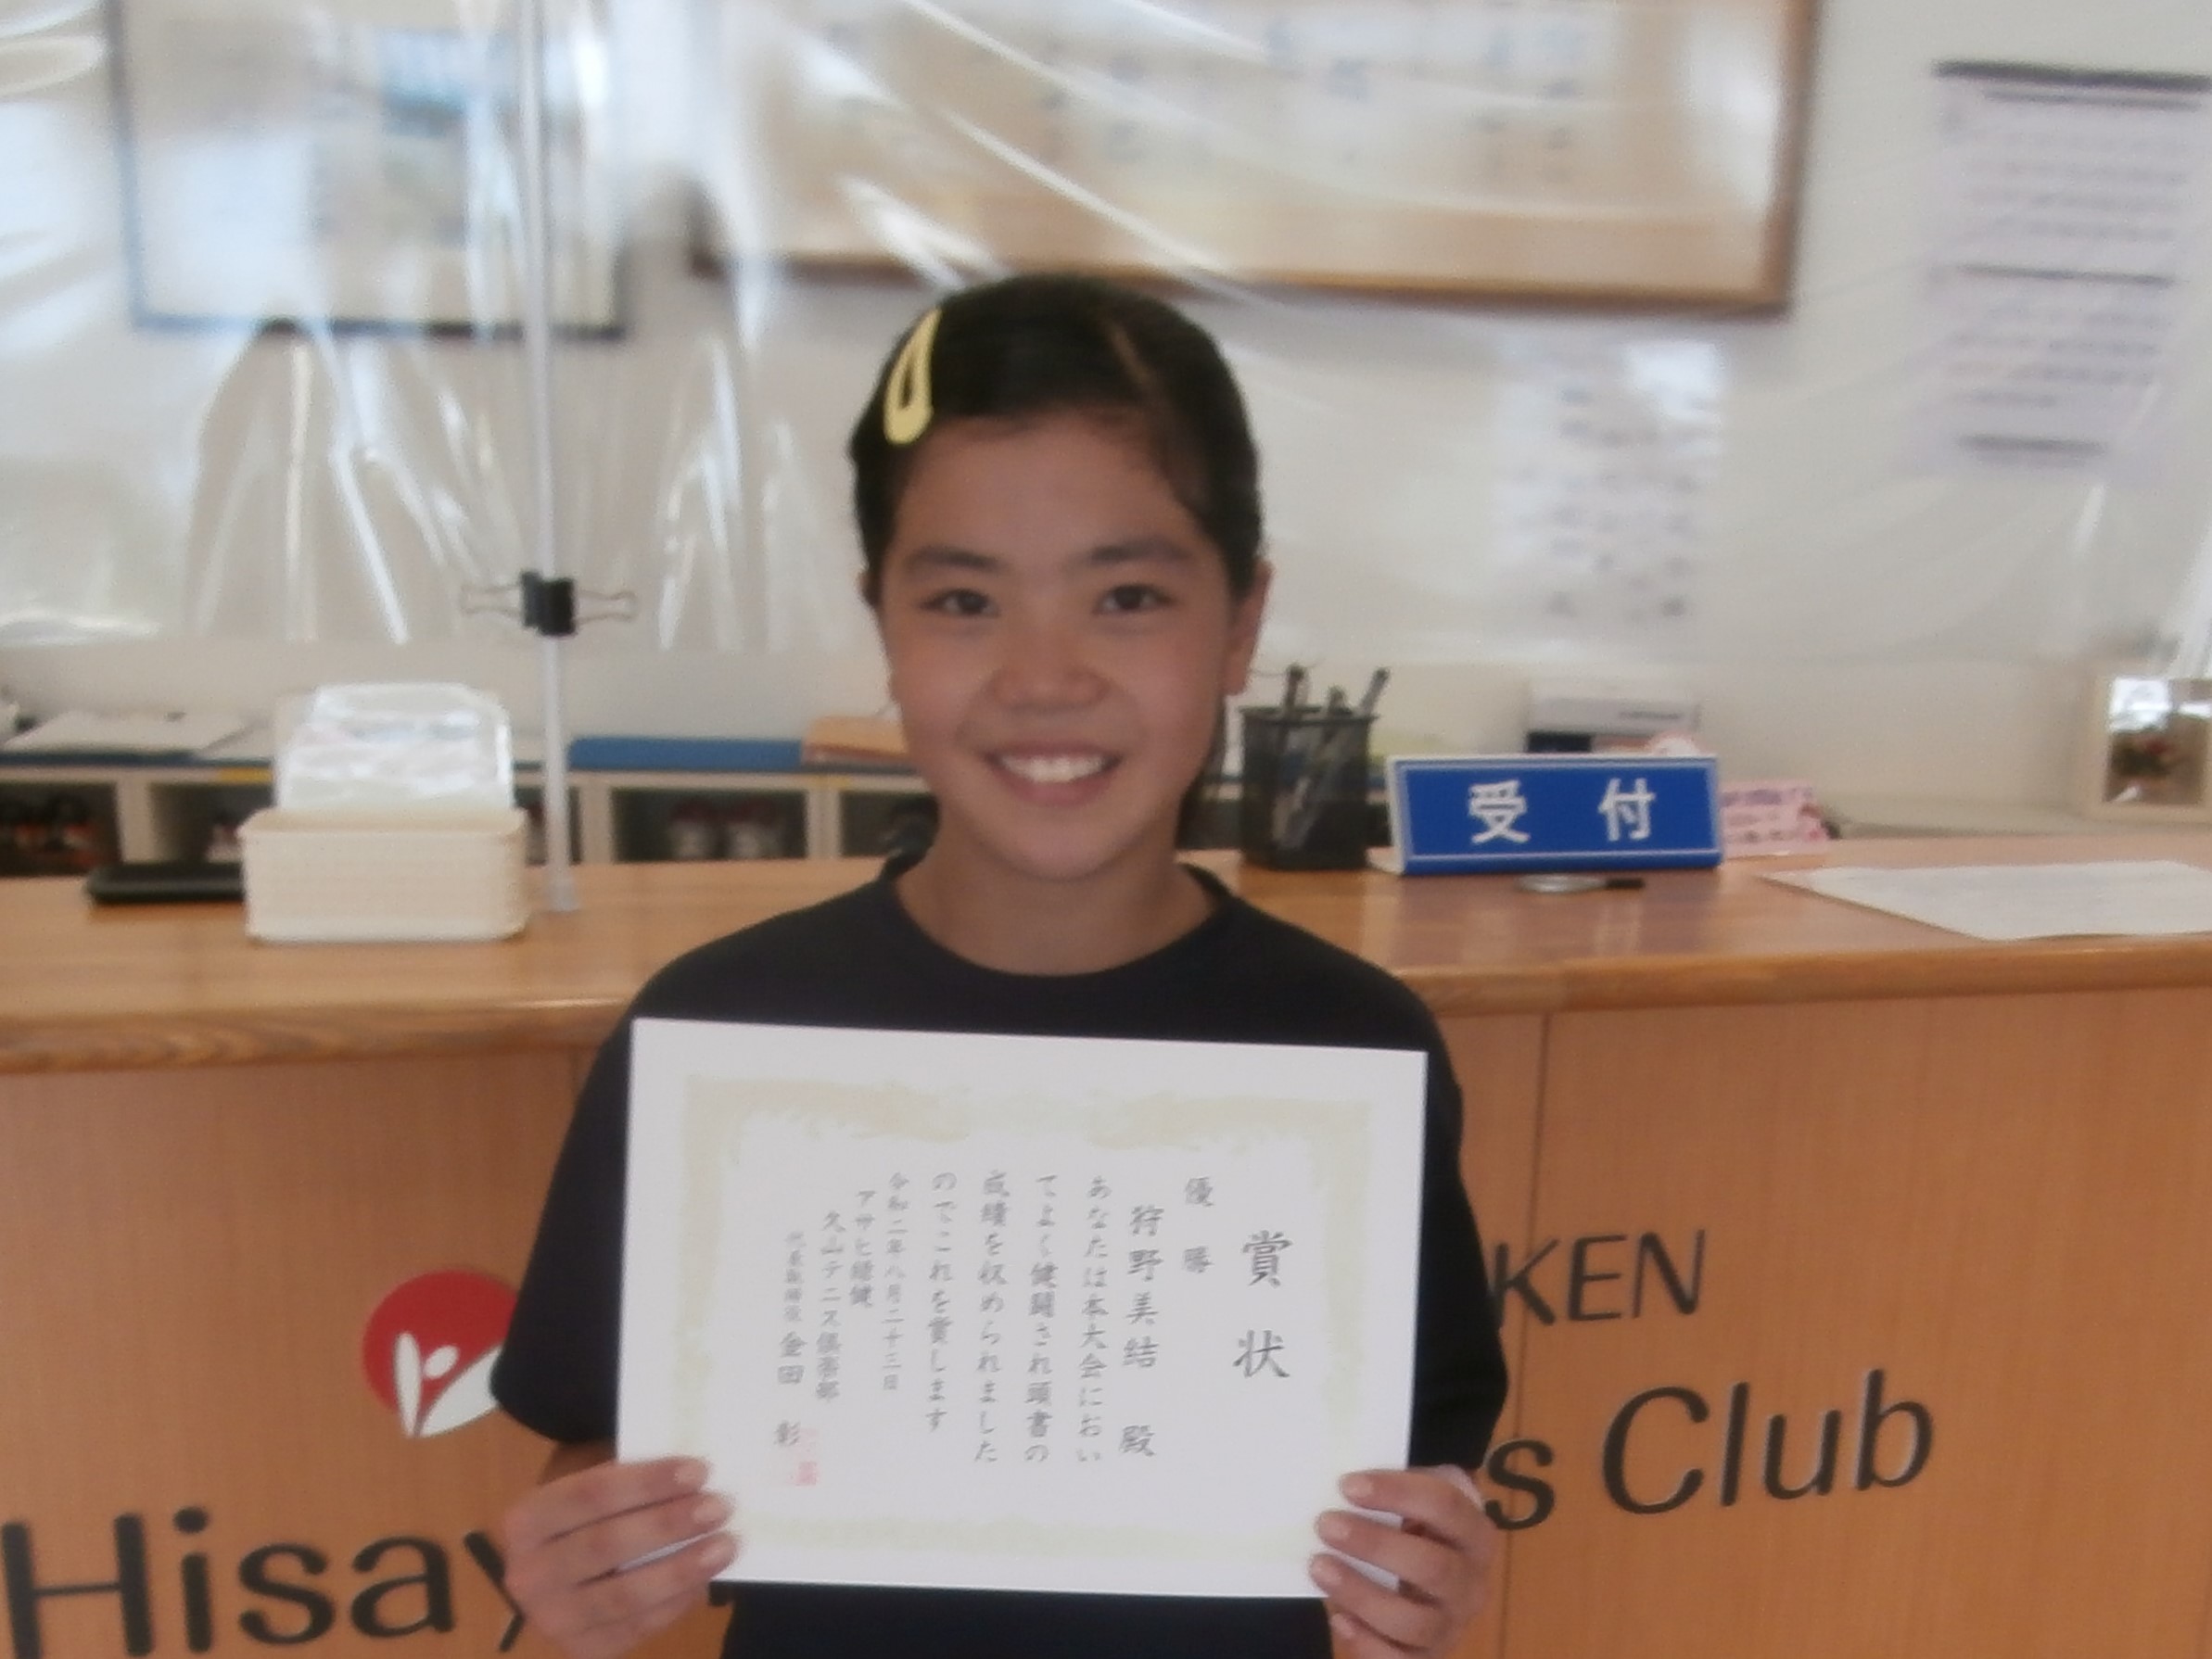 受付
賞状
優勝
狩野美結 殿
あなたは本大会におい
てよく健闘され頭書の
成績を収められました
のでこれを賞します
令和二年八月二十三日
アサヒ緑健
久山テニス倶楽部
代表取締役 金田 彰
KEN
Hisay
s Club